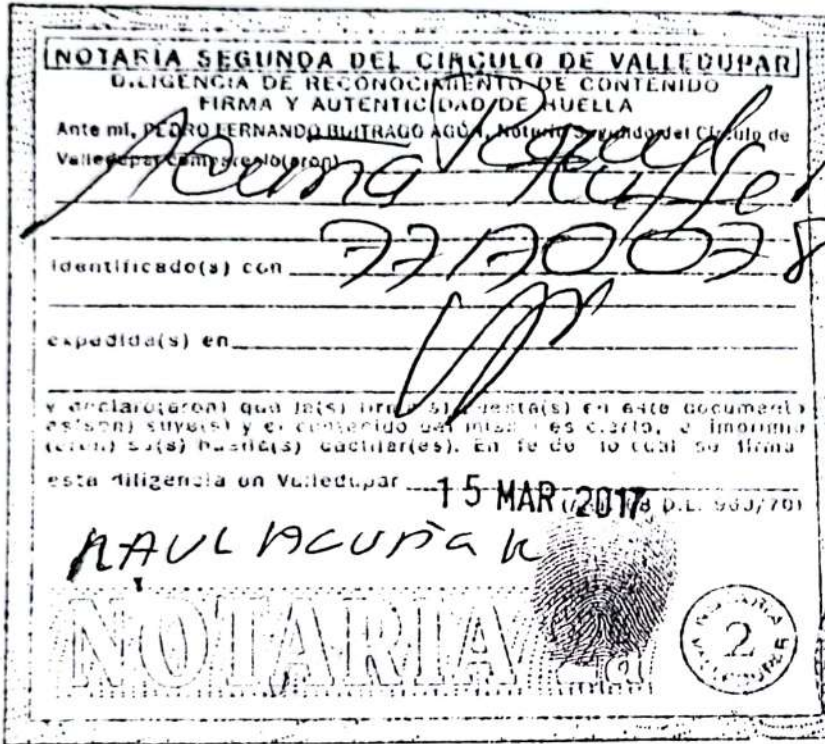 NOTARIA SEGUNDA DEL CIRCULO DE VALLEDUPAR
DILIGENCIA DE RECONOCIMIENTO DE CONTENIDO
FIRMA Y AUTENTICIDAD DE HUELLA
Ante mi, PEDRO FERNANDO BUITRAGO AGÓN, Notario Segundo del Circulo de
Valledupar compareció(eron)
Acuña Raul
77170078
identificado(s) con
expedida(s) en
y declaró(aron) que la(s) firma(s) puesta(s) en este documento
es(son) suya(s) y el contenido del mismo es cierto, e imprimió
(eron) su(s) huella(s) dactilar(es). En fe de lo cual se firma
esta diligencia en Valledupar
15 MAR 2017
D.L. 960/70)
RAUL ACUÑA R
NOTARIA 2a
NOTARIA
2
VALLEDUPAR